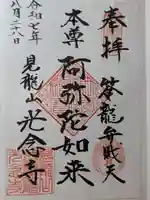 奉拝
答龍弁財天
本尊
阿弥陀如来
見龍山
光念寺
令和七年
八月二十八日